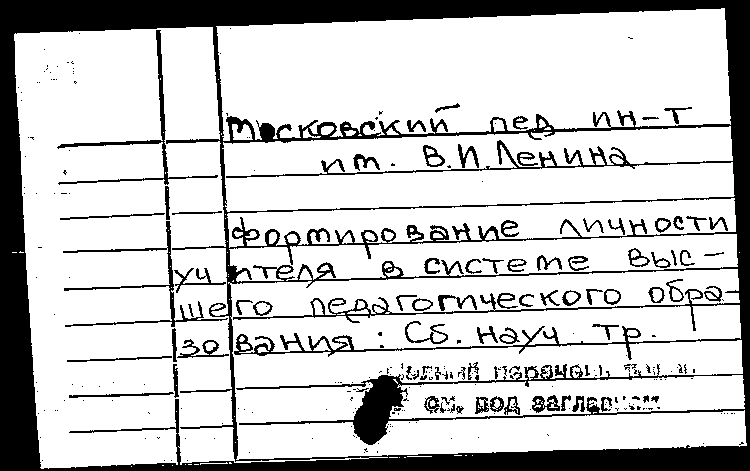 Московский пед ин-т
им. В.И.Ленина
Формирование личности
учителя в системе выс-
шего педагогического обра-
зования : Сб. науч. тр.
Полный перечень
см. под заглавием